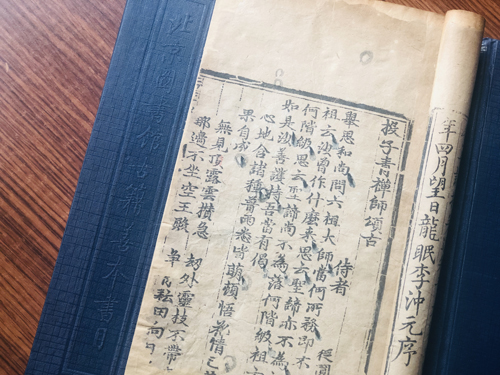 年四月望日龍眠李沖元序
投子青禪師頌古
侍者
舉思和尚問六祖大師當何所務即不
祖云汝曾作什麼來思云聖諦亦不為
何階級思云聖諦尚不為落何階級祖
如是汝善護持吾當有偈
心地含諸種普雨悉皆萌頓悟花情已
果自成
無見頂露雲攢急 劫外靈枝不帶
那邊不坐空王殿 耘田向日
北京圖書館古籍善本書目